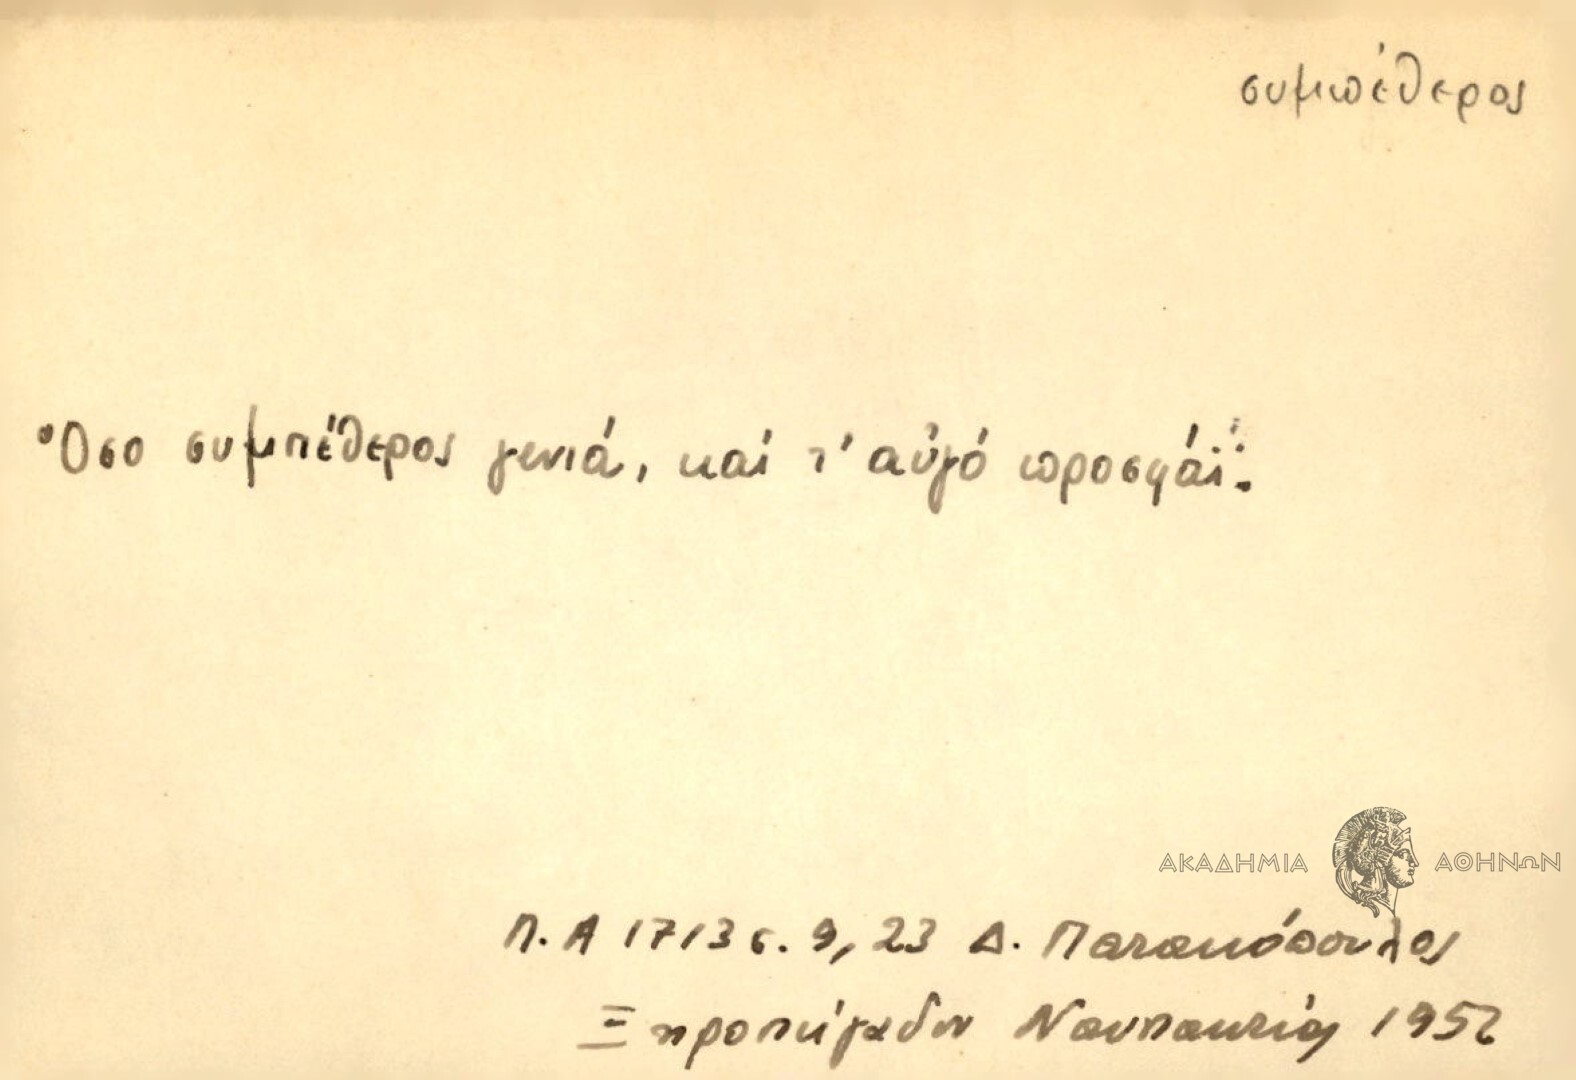 συμπέθερος
Ὅσο συμπέθερος γενιά, καί τ' αὐγό προσφάϊ.
ΑΚΑΔΗΜΙΑ ΑΘΗΝΩΝ
Π. Α 1713 σ. 9, 23 Δ. Πατακόπουλος
Ξηροπήγαδον Ναυπακτίας 1952